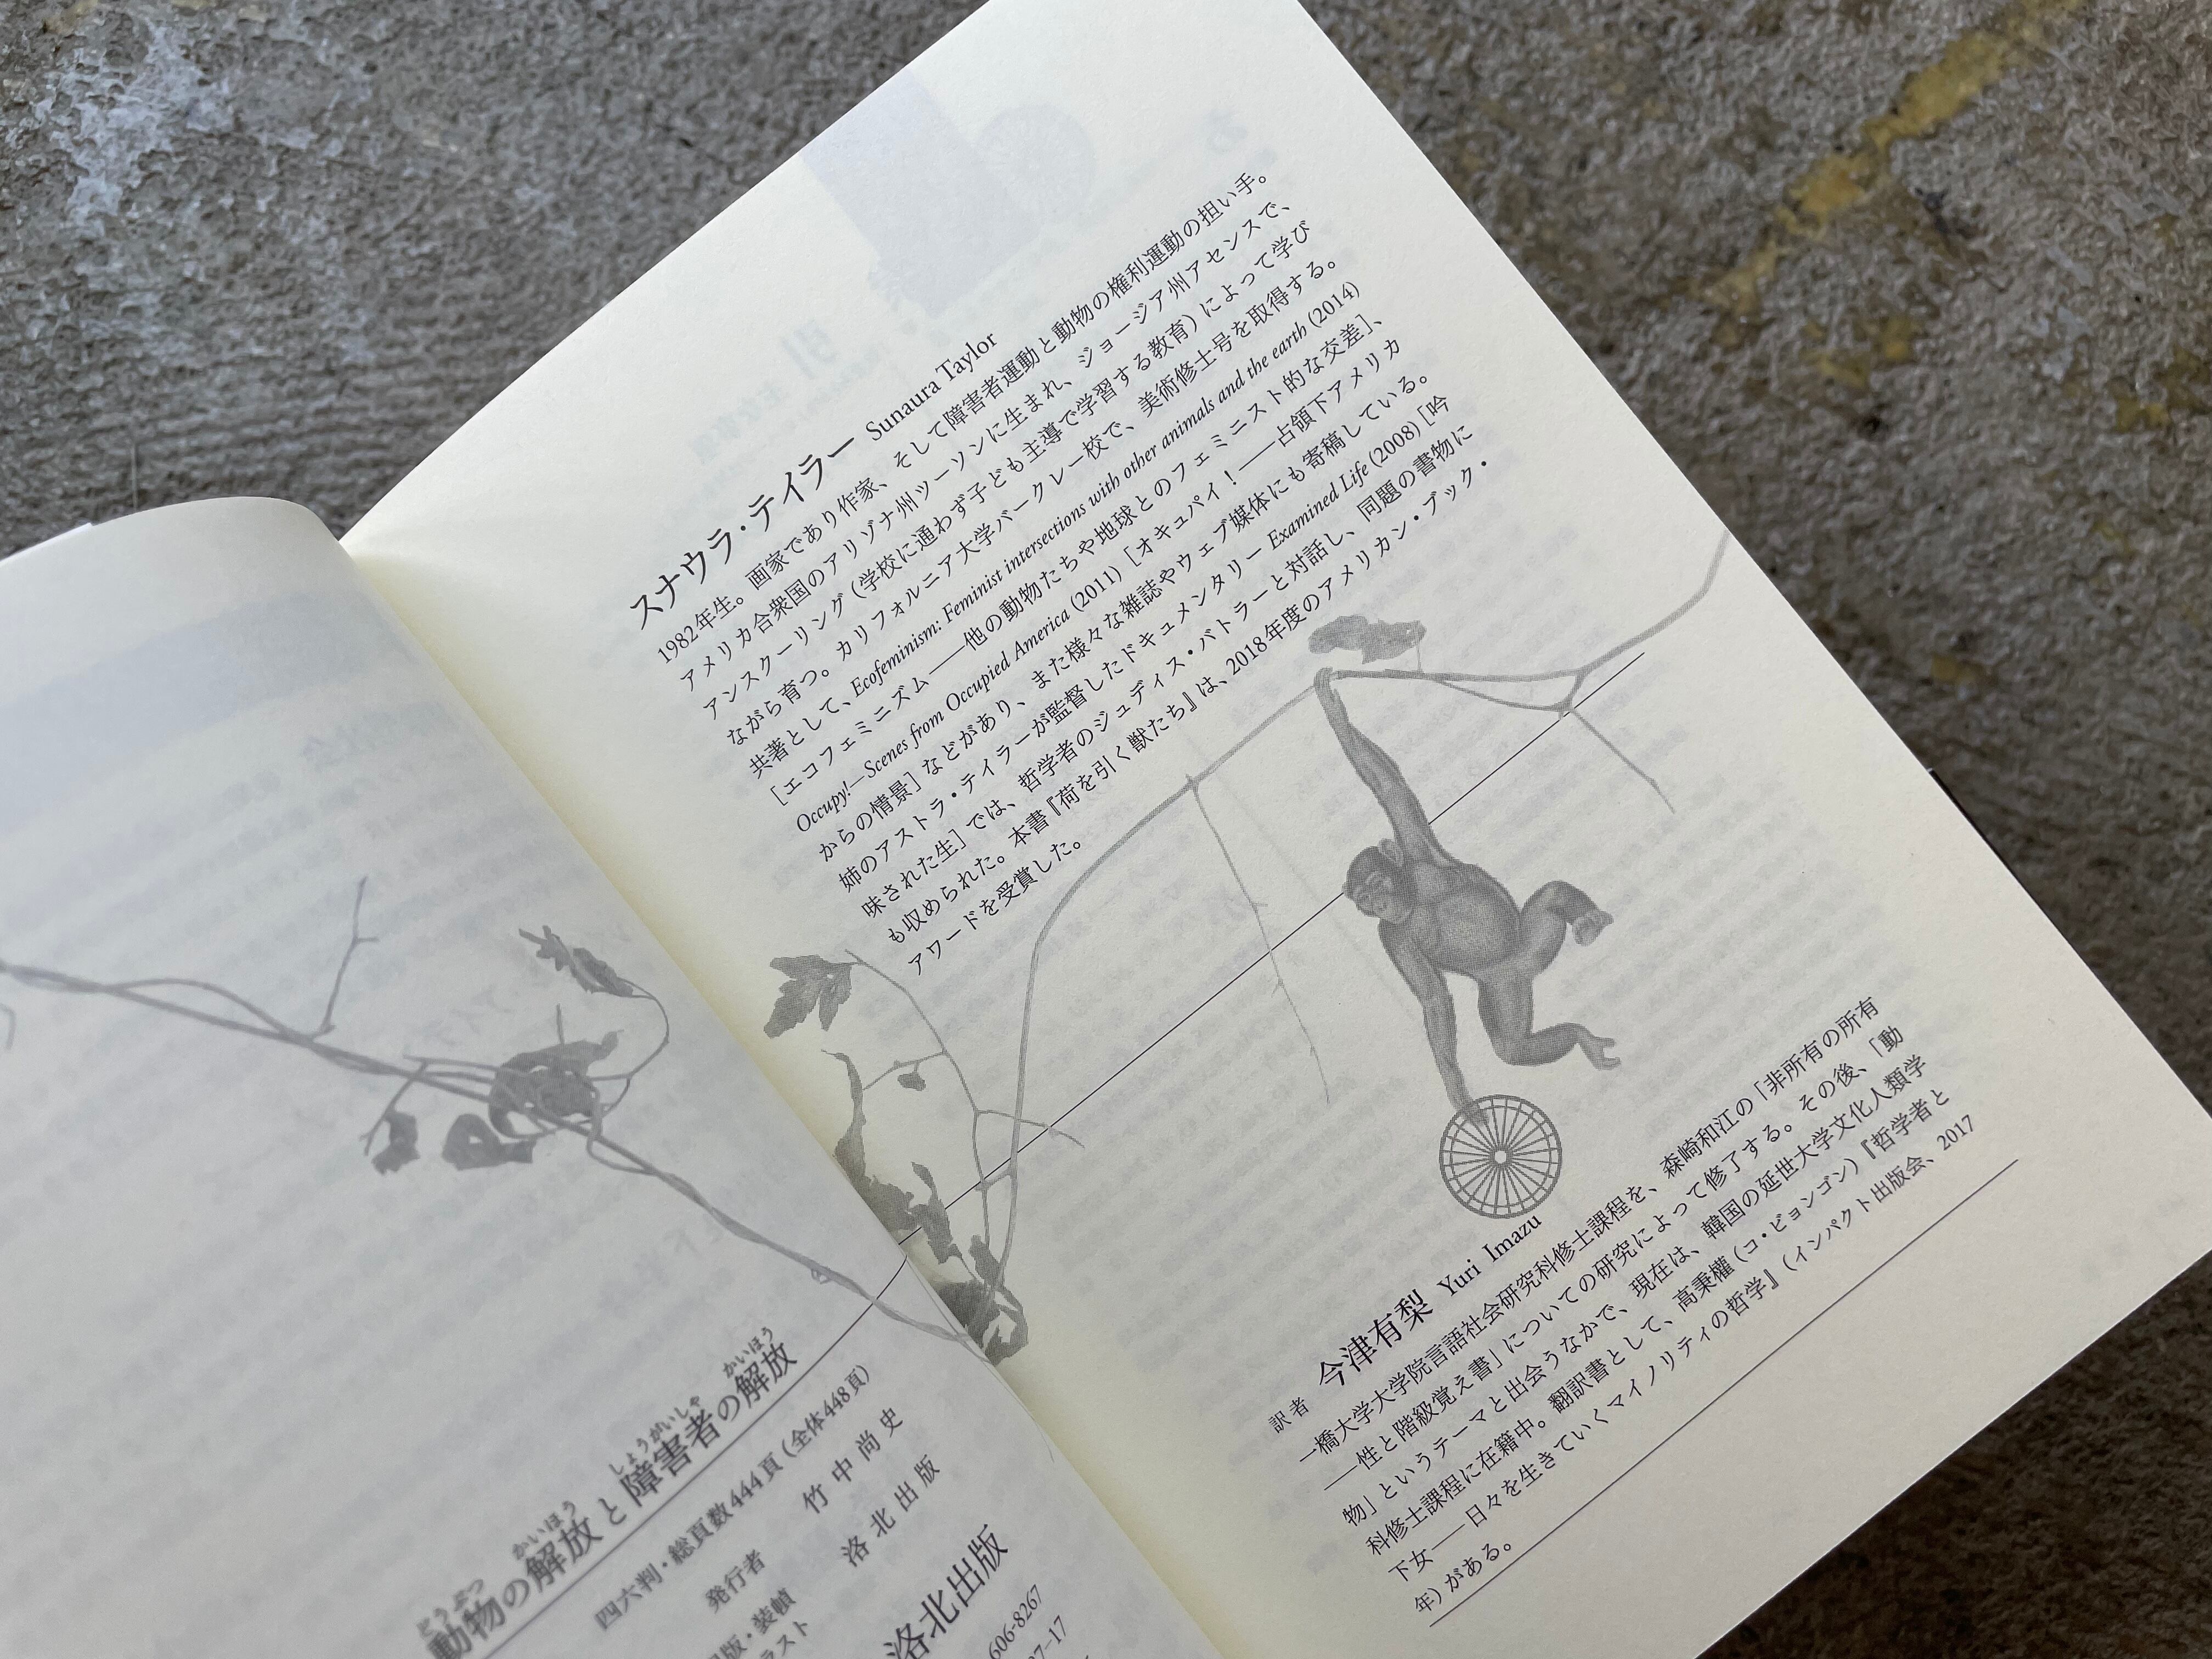 スナウラ・テイラー Sunaura Taylor
1982年生。画家であり作家、そして障害者運動と動物の権利運動の担い手。
アメリカ合衆国のアリゾナ州ツーソンに生まれ、ジョージア州アセンスで、
アンスクーリング（学校に通わず子ども主導で学習する教育）によって学び
ながら育つ。カリフォルニア大学バークレー校で、美術修士号を取得する。
共著として、Ecofeminism: Feminist intersections with other animals and the earth (2014)
［エコフェミニズム――他の動物たちや地球とのフェミニスト的な交差］、
Occupy!—Scenes from Occupied America (2011)［オキュパイ！――占領下アメリカ
からの情景］などがあり、また様々な雑誌やウェブ媒体にも寄稿している。
姉のアストラ・テイラーが監督したドキュメンタリー Examined Life (2008)［吟
味された生］では、哲学者のジュディス・バトラーと対話し、同題の書物に
も収められた。本書『荷を引く獣たち』は、2018年度のアメリカン・ブック・
アワードを受賞した。
訳者 今津有梨 Yuri Imazu
一橋大学大学院言語社会研究科修士課程を、森崎和江の「非所有の所有
――性と階級覚え書」についての研究によって修了する。その後、「動
物」というテーマと出会うなかで、現在は、韓国の延世大学文化人類学
科修士課程に在籍中。翻訳書として、高秉權（コ・ビョンゴン）『哲学者と
下女――日々を生きていくマイノリティの哲学』（インパクト出版会、2017
年）がある。
どうぶつ かいほう しょうがいしゃ かいほう
動物の解放と障害者の解放
四六判・総頁数444頁（全体448頁）
発行者 竹中尚史
版・装幀 洛北出版
ラスト
洛北出版
606-8267
7-17